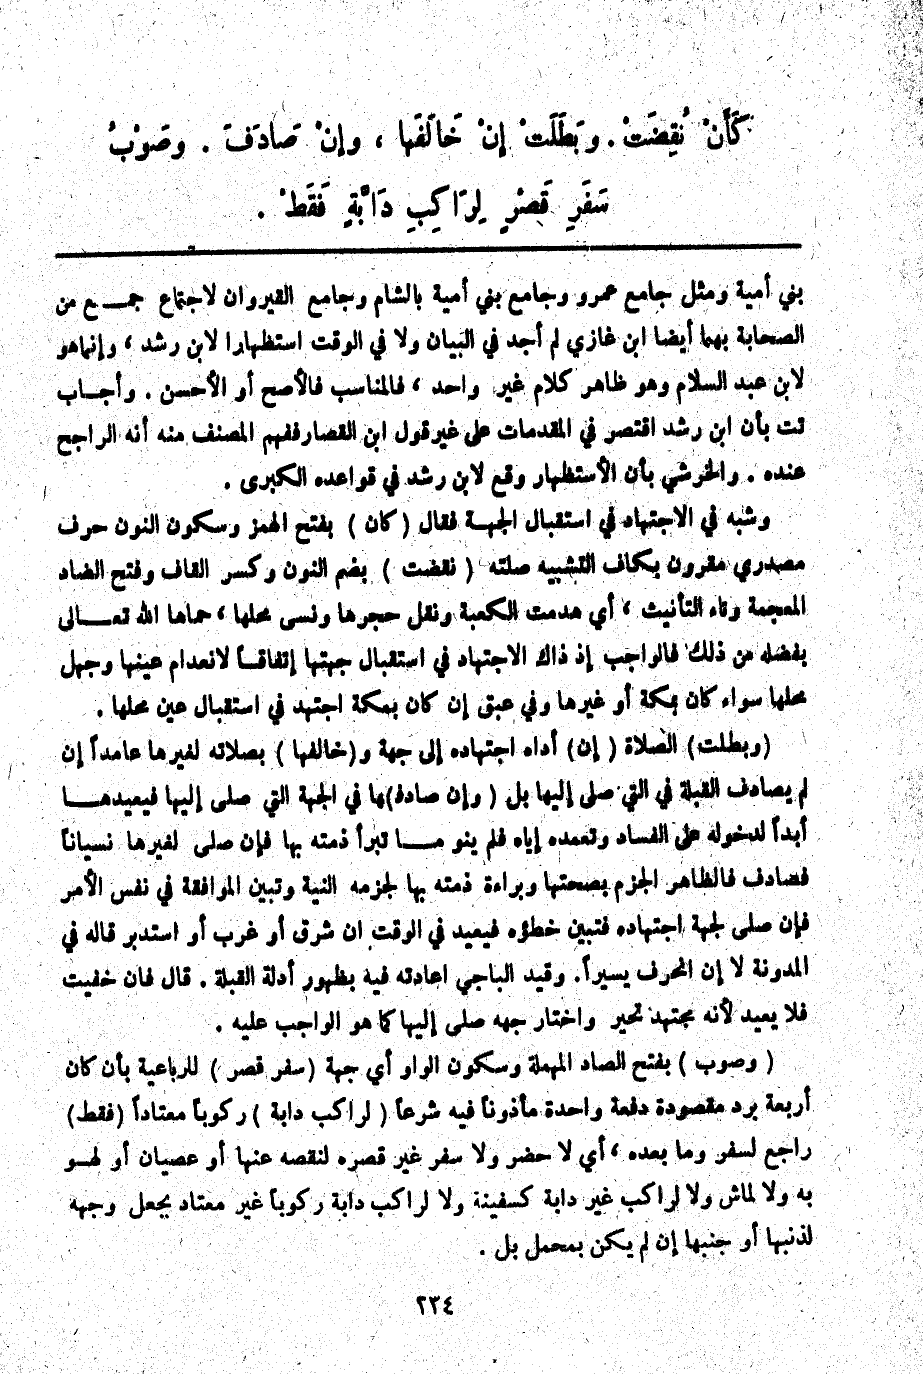 كَأَنْ نُقِضَتْ . وَبَطَلَتْ إِنْ خَالَفَهَا ، وإِنْ صَادَفَ . وصَوْبُ
سَفَرِ قَصْرٍ لِرَاكِبِ دَابَّةٍ فَقَطْ .
بني أمية ومثل جامع عمرو وجامع بني أمية بالشام وجامع القيروان لاجتماع جمـــع من
الصحابة بهما أيضا ابن غازي لم أجد في البيان ولا في الوقت استظهارا لابن رشد ، وإنما هو
لابن عبد السلام وهو ظاهر كلام غير واحد ، فالمناسب فالأصح أو الأحسن . وأجــاب
تت بأن ابن رشد اقتصر في المقدمات على غير قول ابن القصار ففهم المصنف منه أنه الراجح
عنده . والخرشي بأن الأستظهار وقع لابن رشد في قواعده الكبرى .
وشبه في الاجتهاد في استقبال الجهــة فقال ( كان ) بفتح الهمز وسكون النون حرف
مصدري مقرون بكاف التشبيه صلته ( نقضت ) بضم النون وكسر القاف وفتح الضاد
المعجمة وتاء التأنيث ، أي هدمت الكعبة ونقل حجرها ونسى محلها ، حماها الله تعــالى
بفضله من ذلك فالواجب إذ ذاك الاجتهاد في استقبال جهتها إتفاقــاً لانعدام عينها وجهل
محلها سواء كان بمكة أو غيرها وفي عبق إن كان بمكة اجتهد في استقبال عين محلها .
(وبطلت) الصلاة ( إن) أداه اجتهاده إلى جهة و(خالفها ) بصلاته لغيرها عامداً إن
لم يصادف القبلة في التي صلى إليها بل ( وإن صادف)ها في الجهة التي صلى إليها فيعيدهــــا
أبداً لدخوله على الفساد وتعمده إياه فلم ينو مــــا تبرأ ذمته بها فإن صلى لغيرها نسياناً
فصادف فالظاهر الجزم بصحتها وبراءة ذمته بها لجزمه النية وتبين الموافقة في نفس الأمر
فإن صلى لجهة اجتهاده فتبين خطؤه فيعيد في الوقت ان شرق أو غرب أو استدبر قاله في
المدونة لا إن انحرف يسيراً. وقيد الباجي اعادته فيه بظهور أدلة القبلة . قال فان خفيت
فلا يعيد لأنه مجتهد تحير واختار جهه صلى إليها كما هو الواجب عليه .
( وصوب ) بفتح الصاد المهملة وسكون الواو أي جهة (سفر قصر ) للرباعية بأن كان
أربعة برد مقصودة دفعة واحدة مأذوناً فيه شرعاً ( لراكب دابة ) ركوباً معتاداً (فقط)
راجع لسفر وما بعده ، أي لا حضر ولا سفر غير قصره لنقصه عنها أو عصيان أو لهــو
به ولا لماش ولا لراكب غير دابة كسفينة ولا لراكب دابة ركوباً غير معتاد بجعل وجهه
لذنبها أو جنبها إن لم يكن بمحمل بل .
٢٣٤